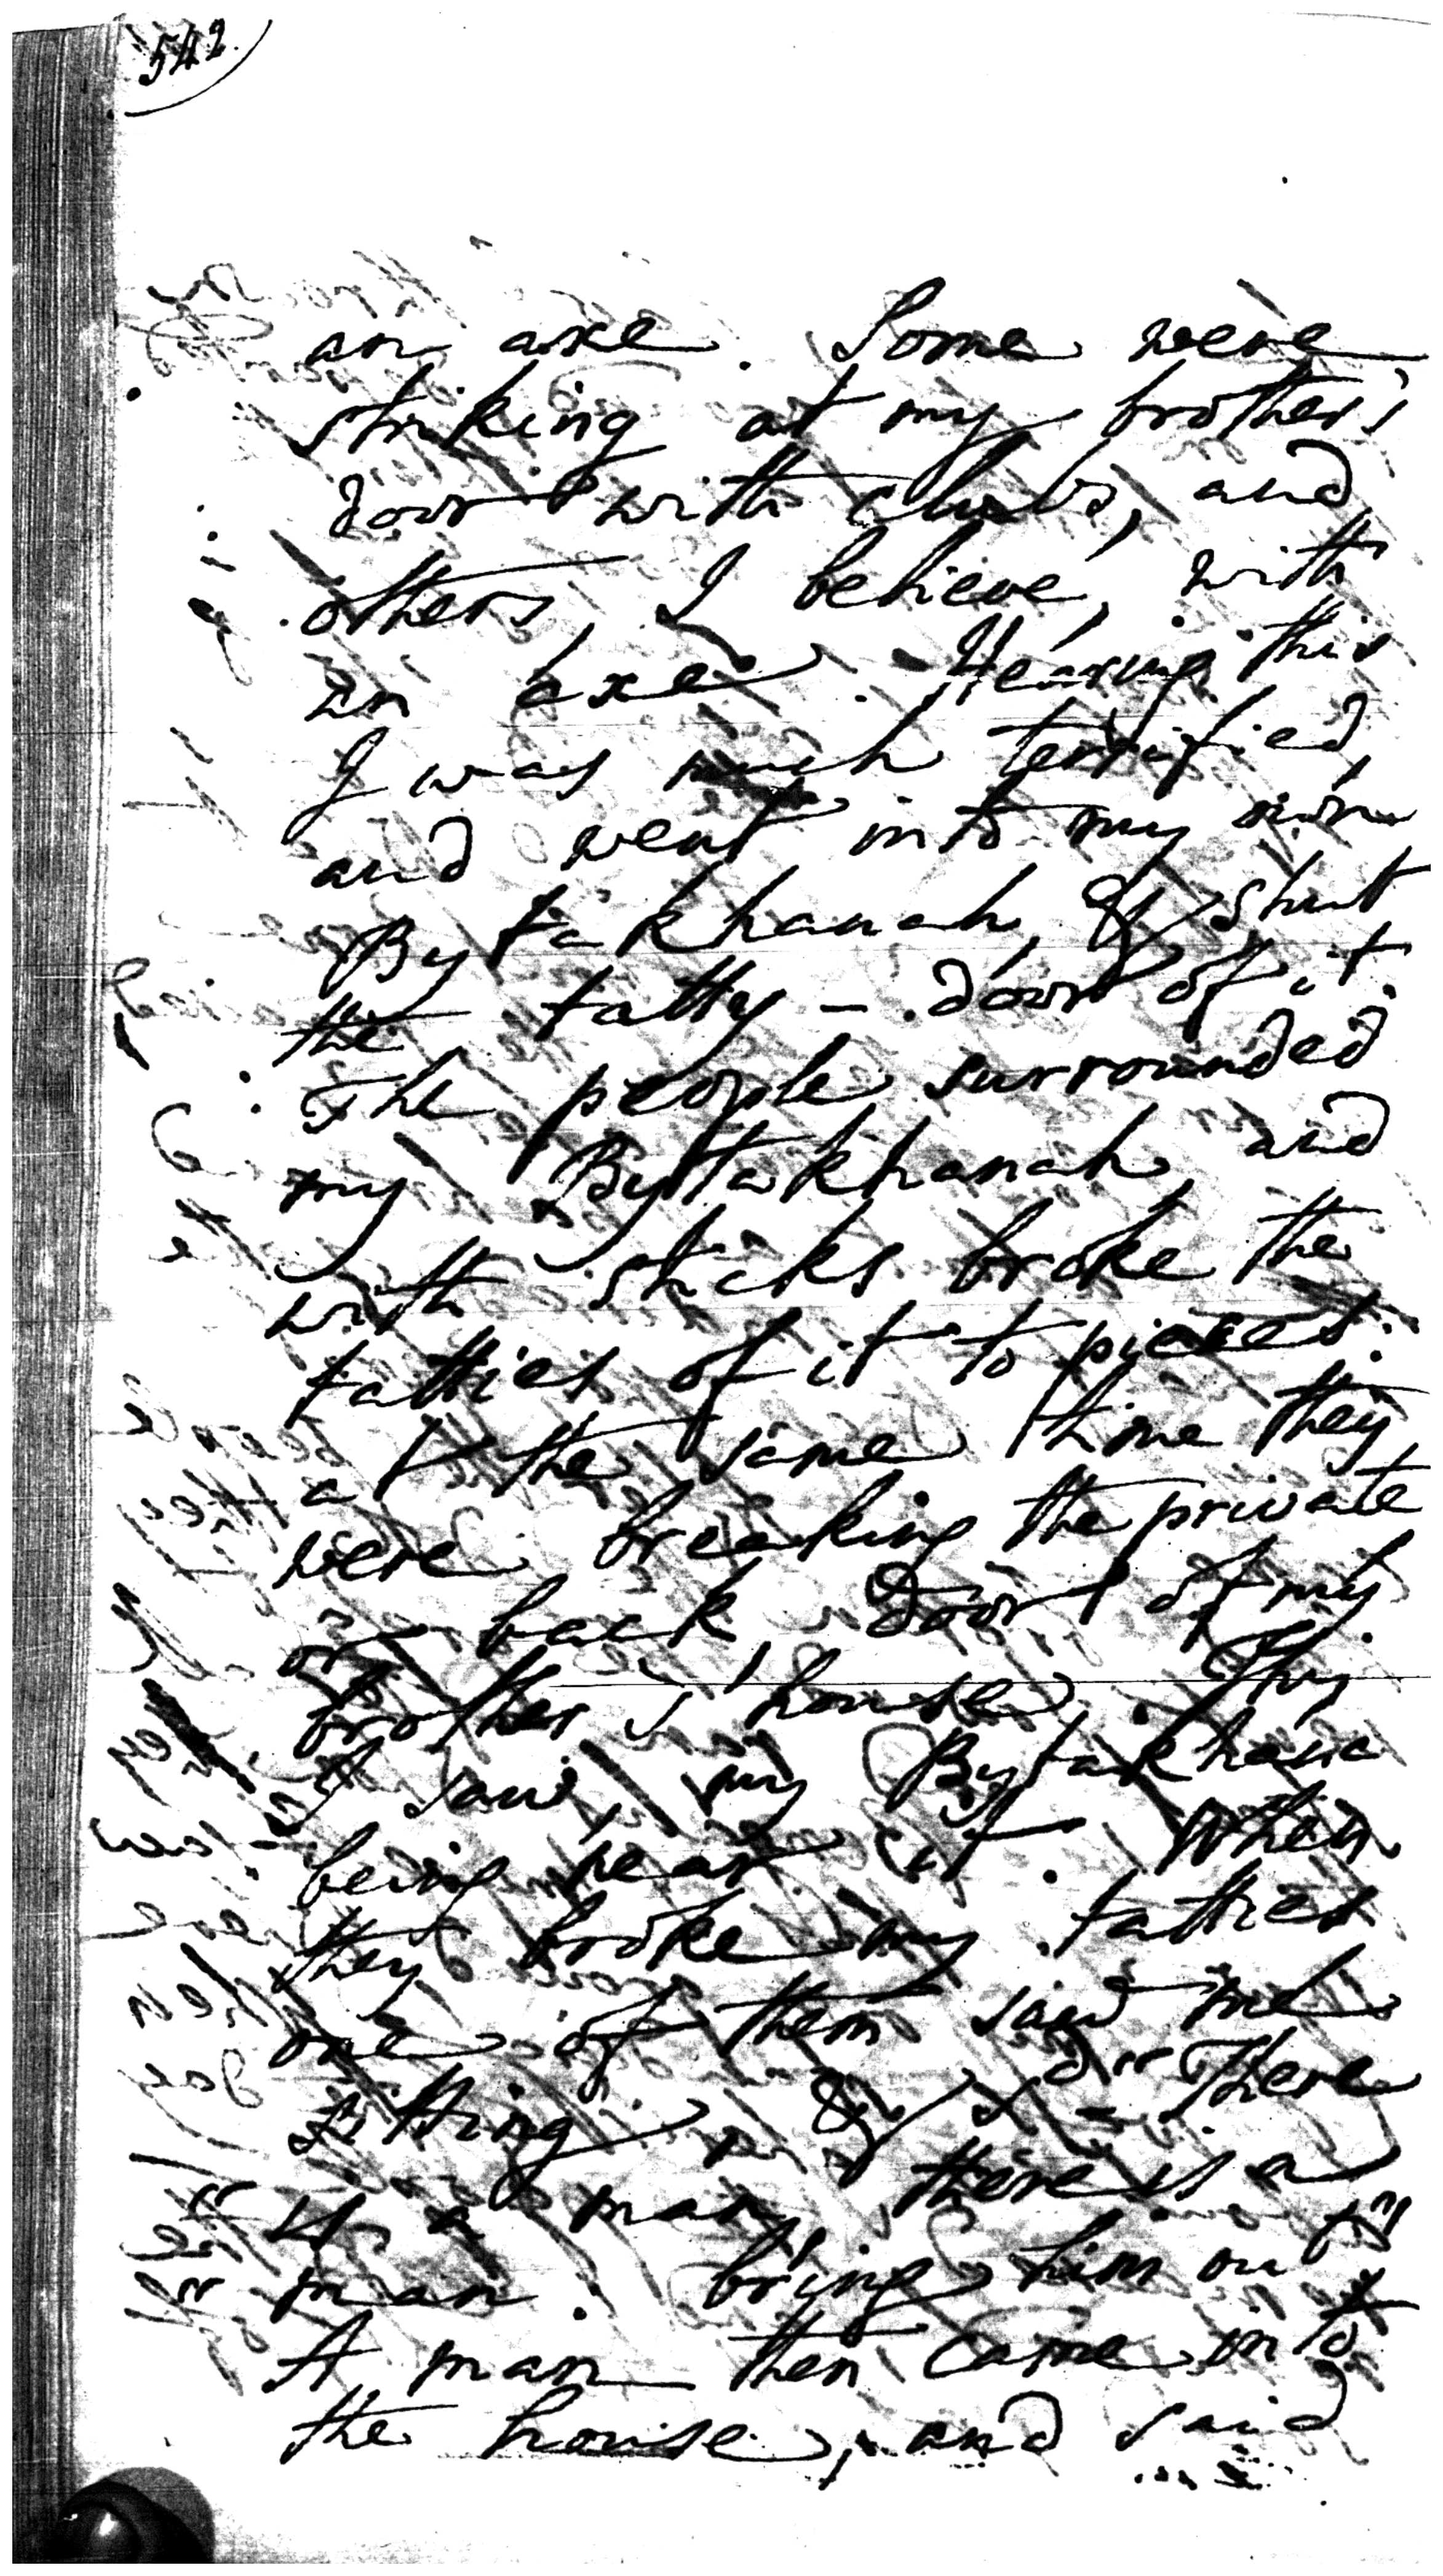 542.
an axe. Some were
striking at my brother's
door with clubs, and
others, I believe, with
an axe. Hearing this
I was much terrified,
and went into my own
Bytakhanah, & shut
the tatty-door of it.
The people surrounded
my Bytakhanah, and
with sticks broke the
tatties of it to pieces:
at the same time they
were breaking the private
or back door of my
brother's house. This
I saw, my Bytakhana
being near it. When
they broke my tatties
one of them saw me
sitting, & sd "There
"is a man, there is a
"man. bring him out"
A man then came into
the house, and said